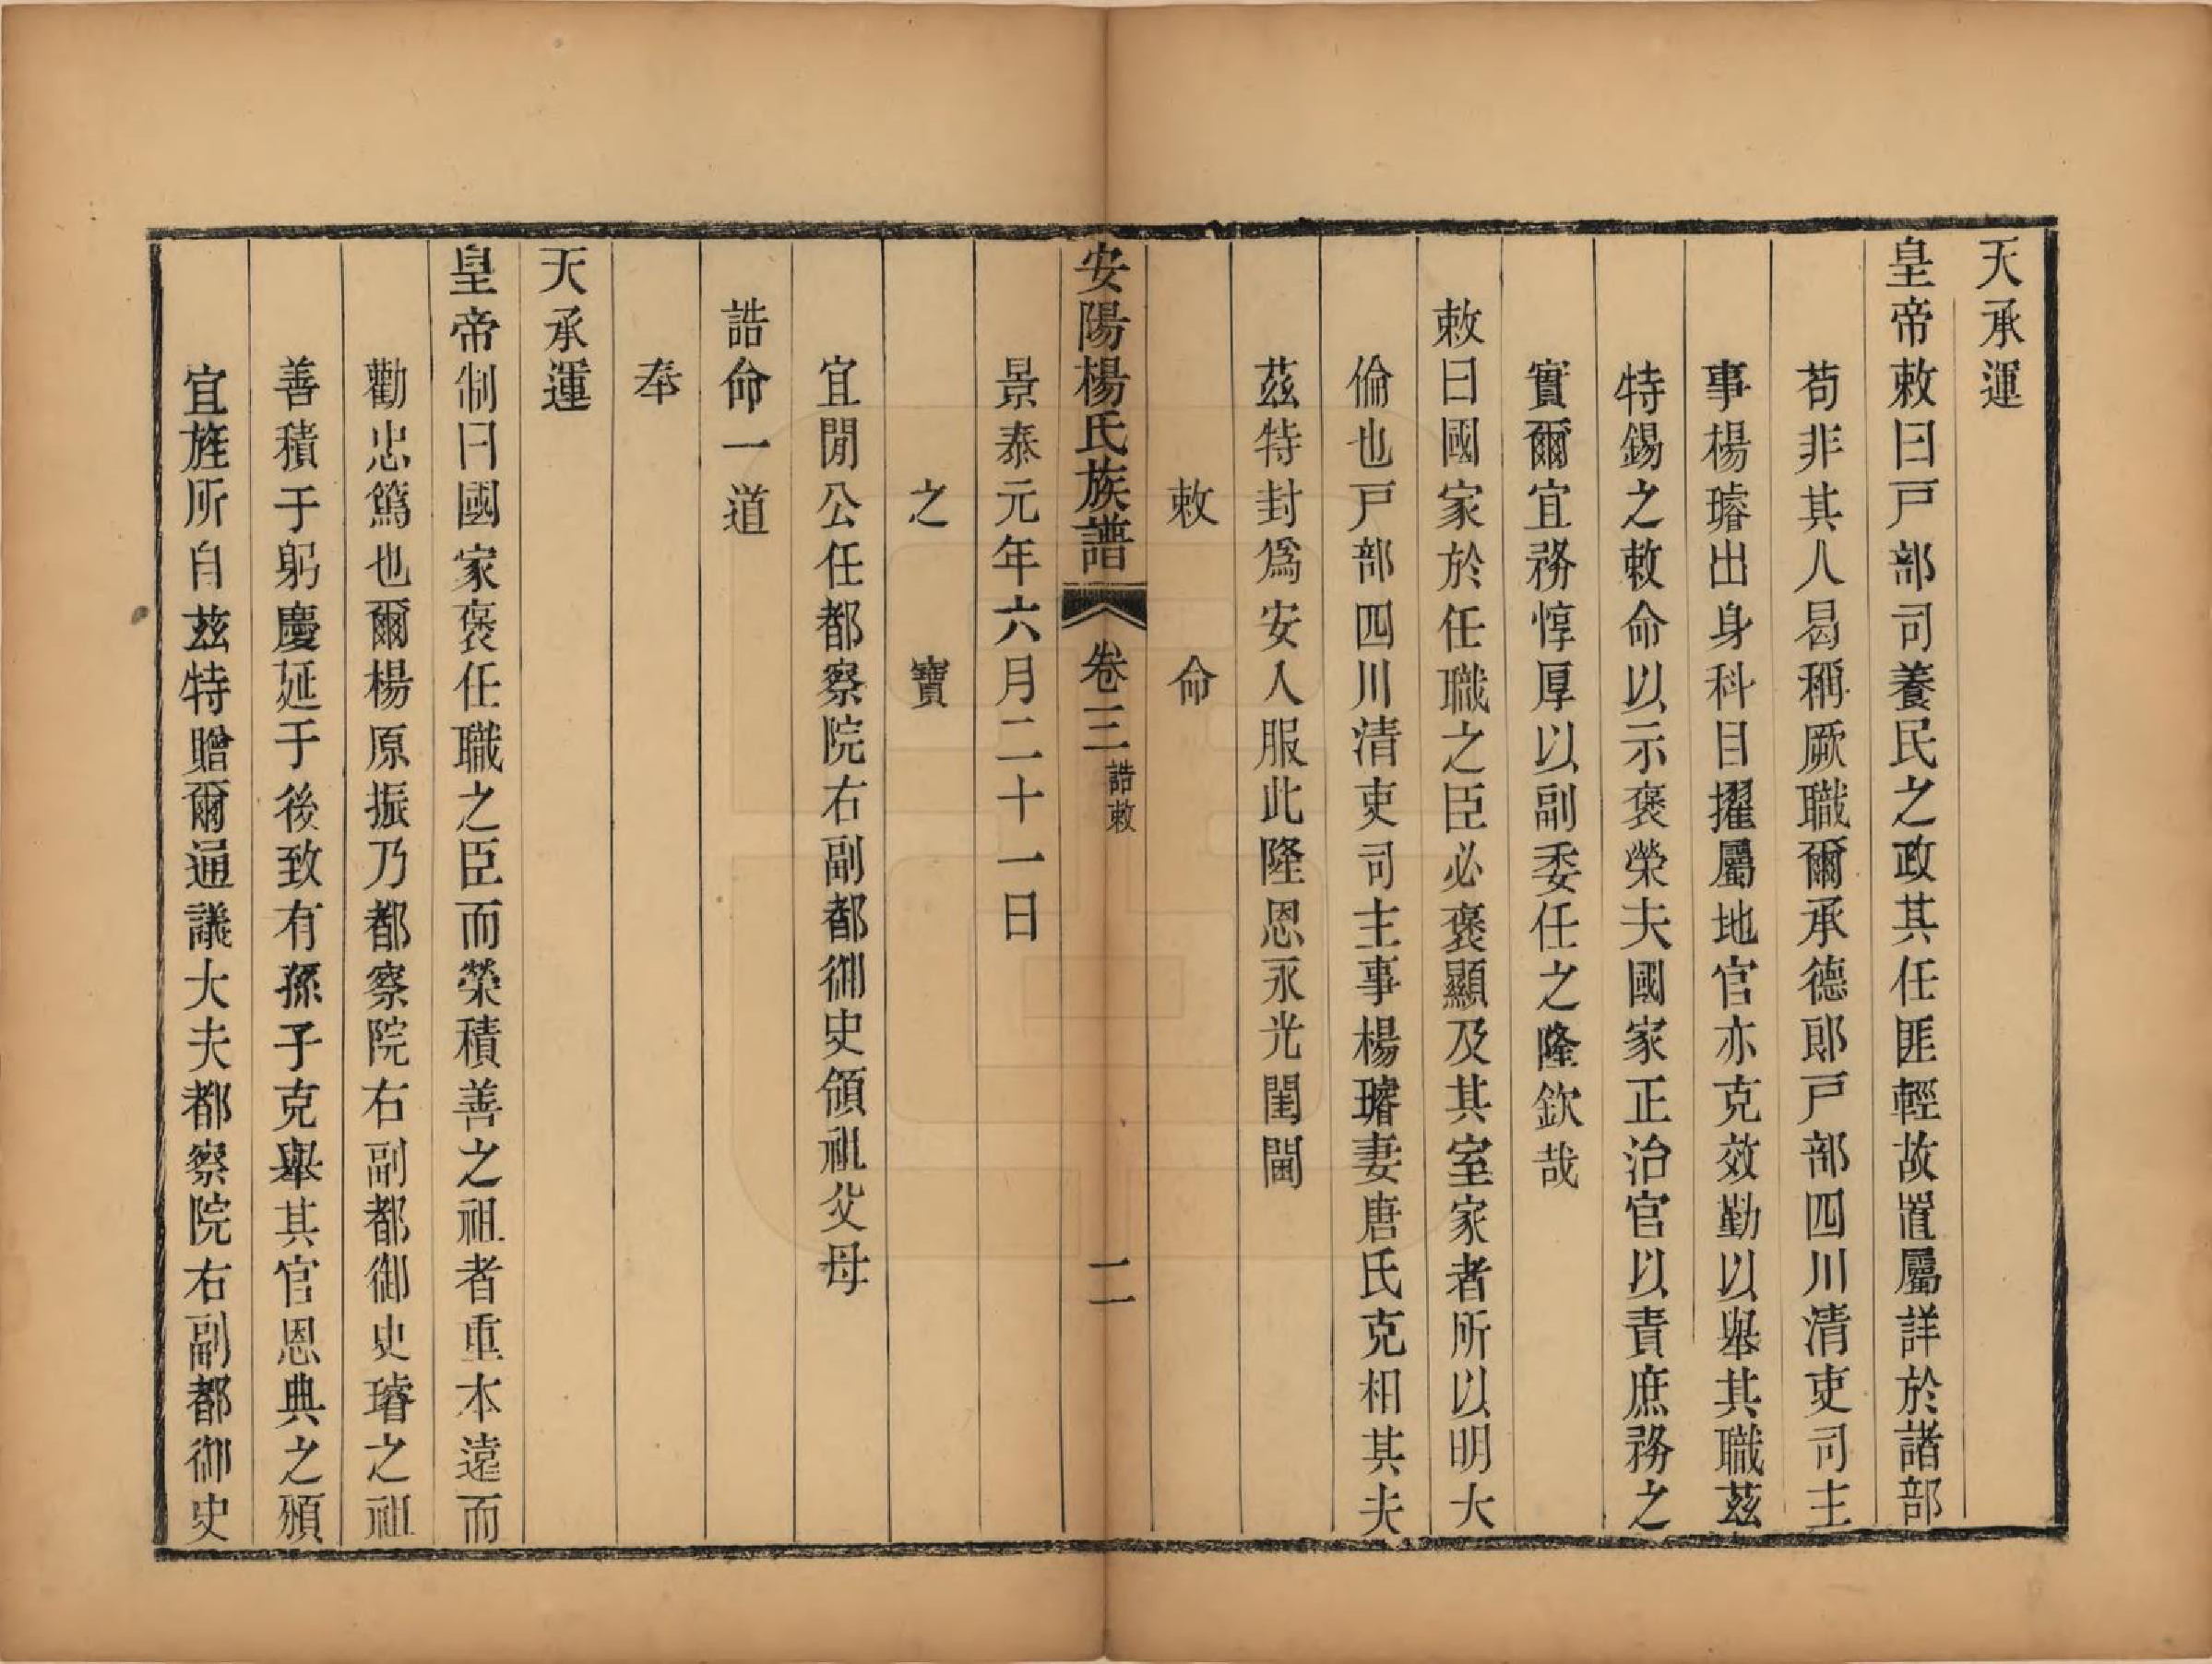 天承運
皇帝敕曰戸部司養民之政其任匪輕故置屬詳於諸部
苟非其人曷稱厥職爾承德郎戸部四川清吏司主
事楊璿出身科目擢屬地官亦克效勤以舉其職茲
特錫之敕命以示褒榮夫國家正治官以責庶務之
實爾宜務惇厚以副委任之隆欽哉
敕曰國家於任職之臣必褒顯及其室家者所以明大
倫也戸部四川清吏司主事楊璿妻唐氏克相其夫
茲特封爲安人服此隆恩永光閨閫
敕命
安陽楊氏族譜 卷三 誥敕 二
景泰元年六月二十一日
之寶
宜閒公任都察院右副都御史領祖父母
誥命一道
奉
天承運
皇帝制曰國家褒任職之臣而榮積善之祖者重本遠而
勸忠篤也爾楊原振乃都察院右副都御史璿之祖
善積于躬慶延于後致有孫子克舉其官恩典之頒
宜旌所自茲特贈爾通議大夫都察院右副都御史